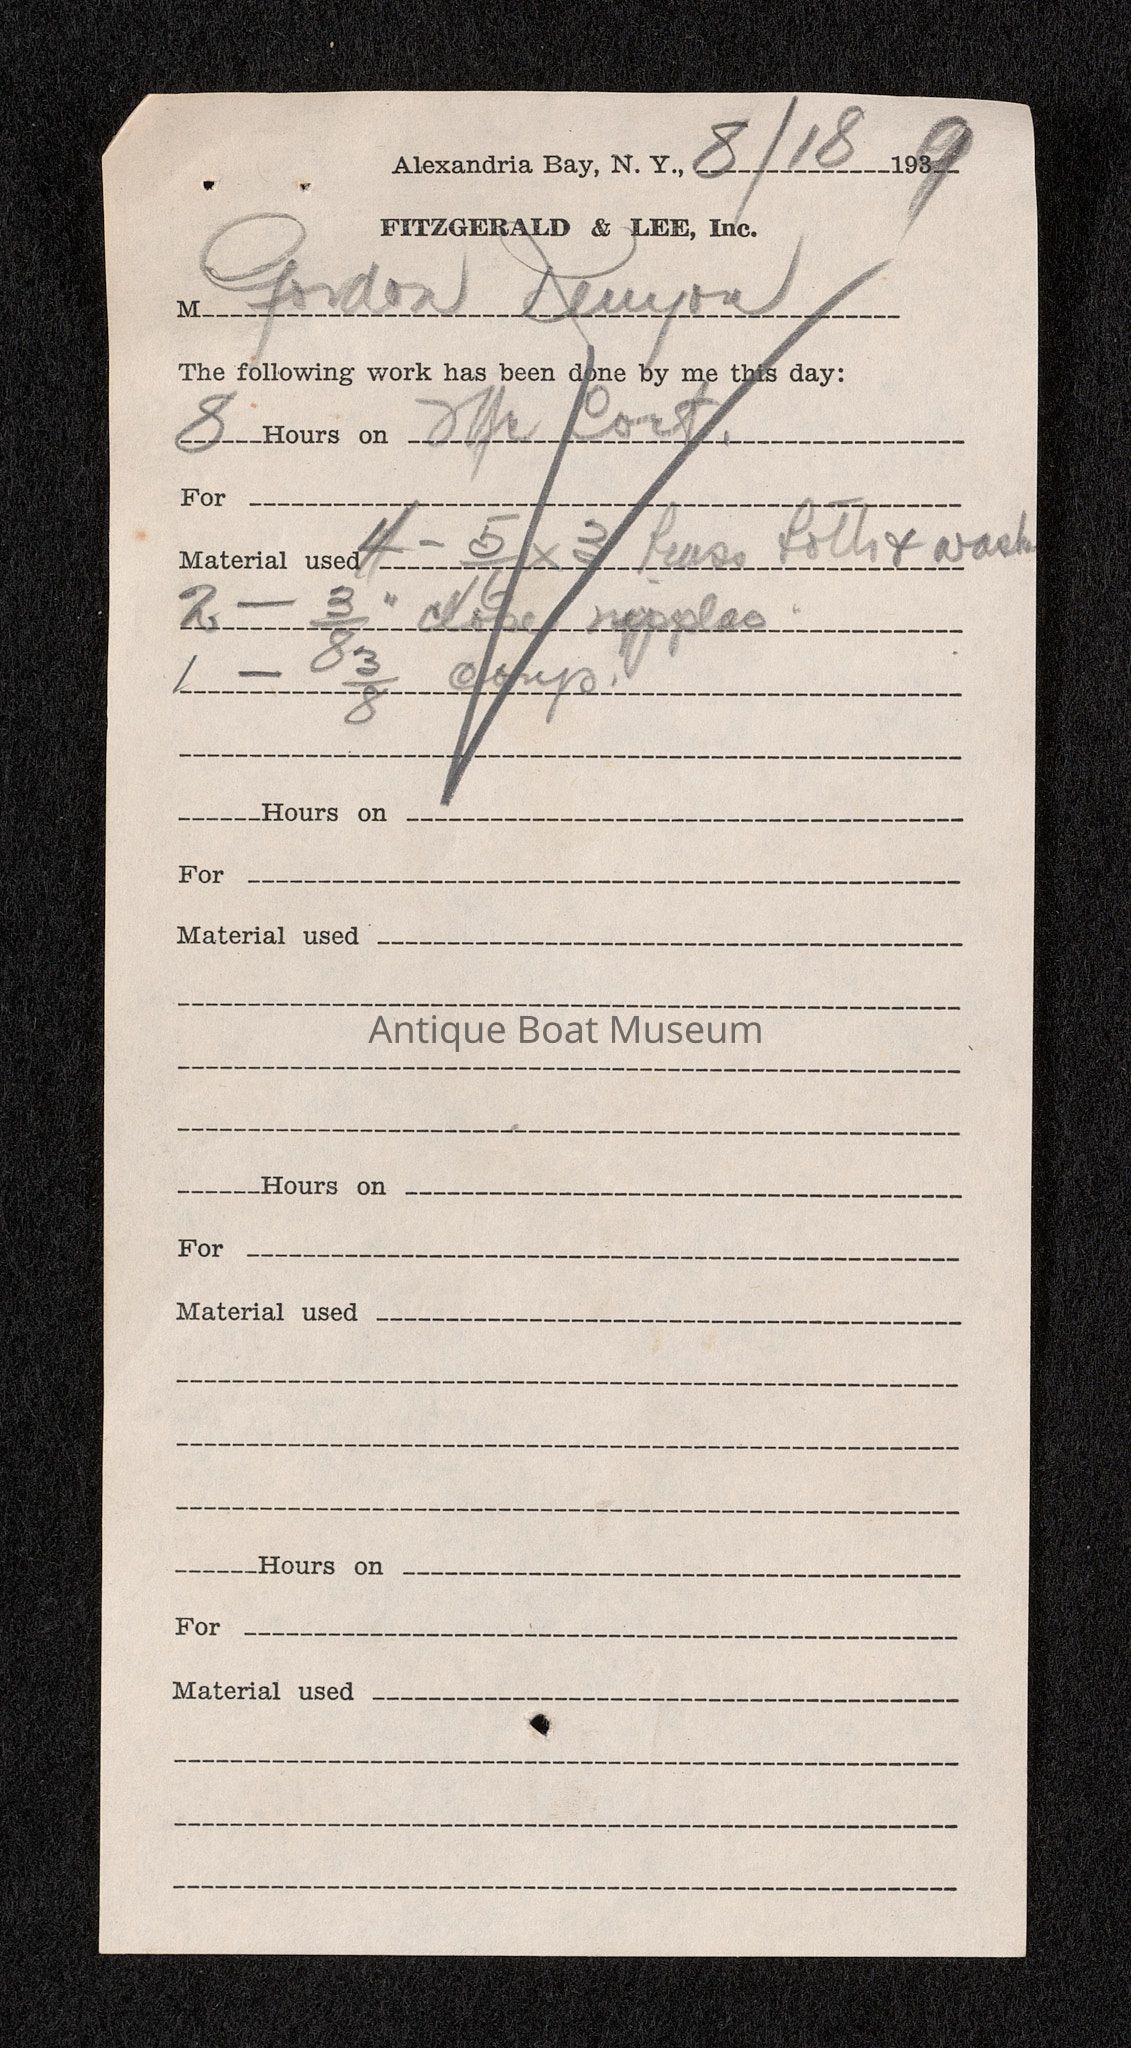 Alexandria Bay, N. Y., 8/18 1939
FITZGERALD & LEE, Inc.
M Gordon Kenyon
The following work has been done by me this day:
8 Hours on Mr Cort.
For
Material used 4 - 5/16 x 3 brass bolts & wash
2 - 3/8" close nipples
1 - 3/8
Hours on
For
Material used
Antique Boat Museum
Hours on
For
Material used
Hours on
For
Material used